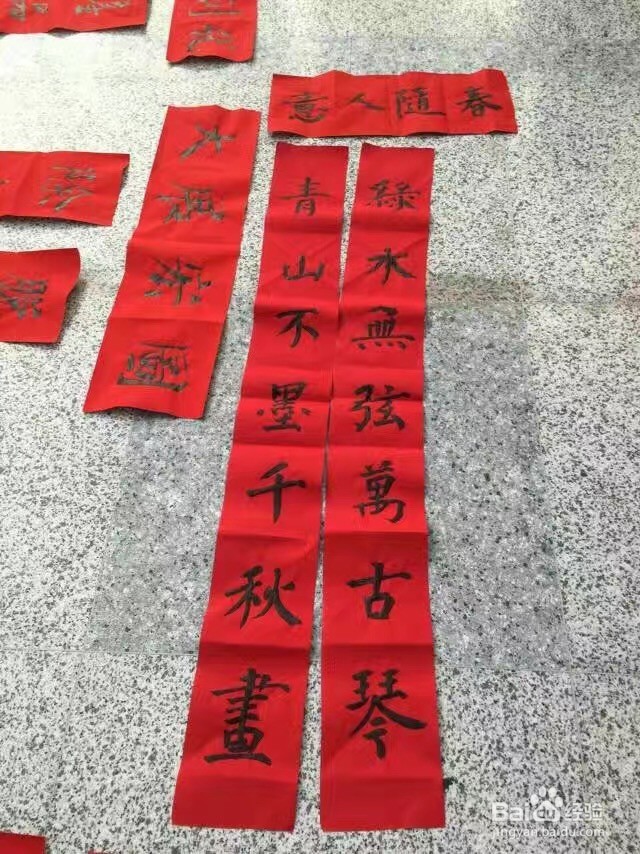 春隨人意
綠水無弦萬古琴
青山不墨千秋畫
大展宏圖
Baidu经验
jingyan.baidu.com